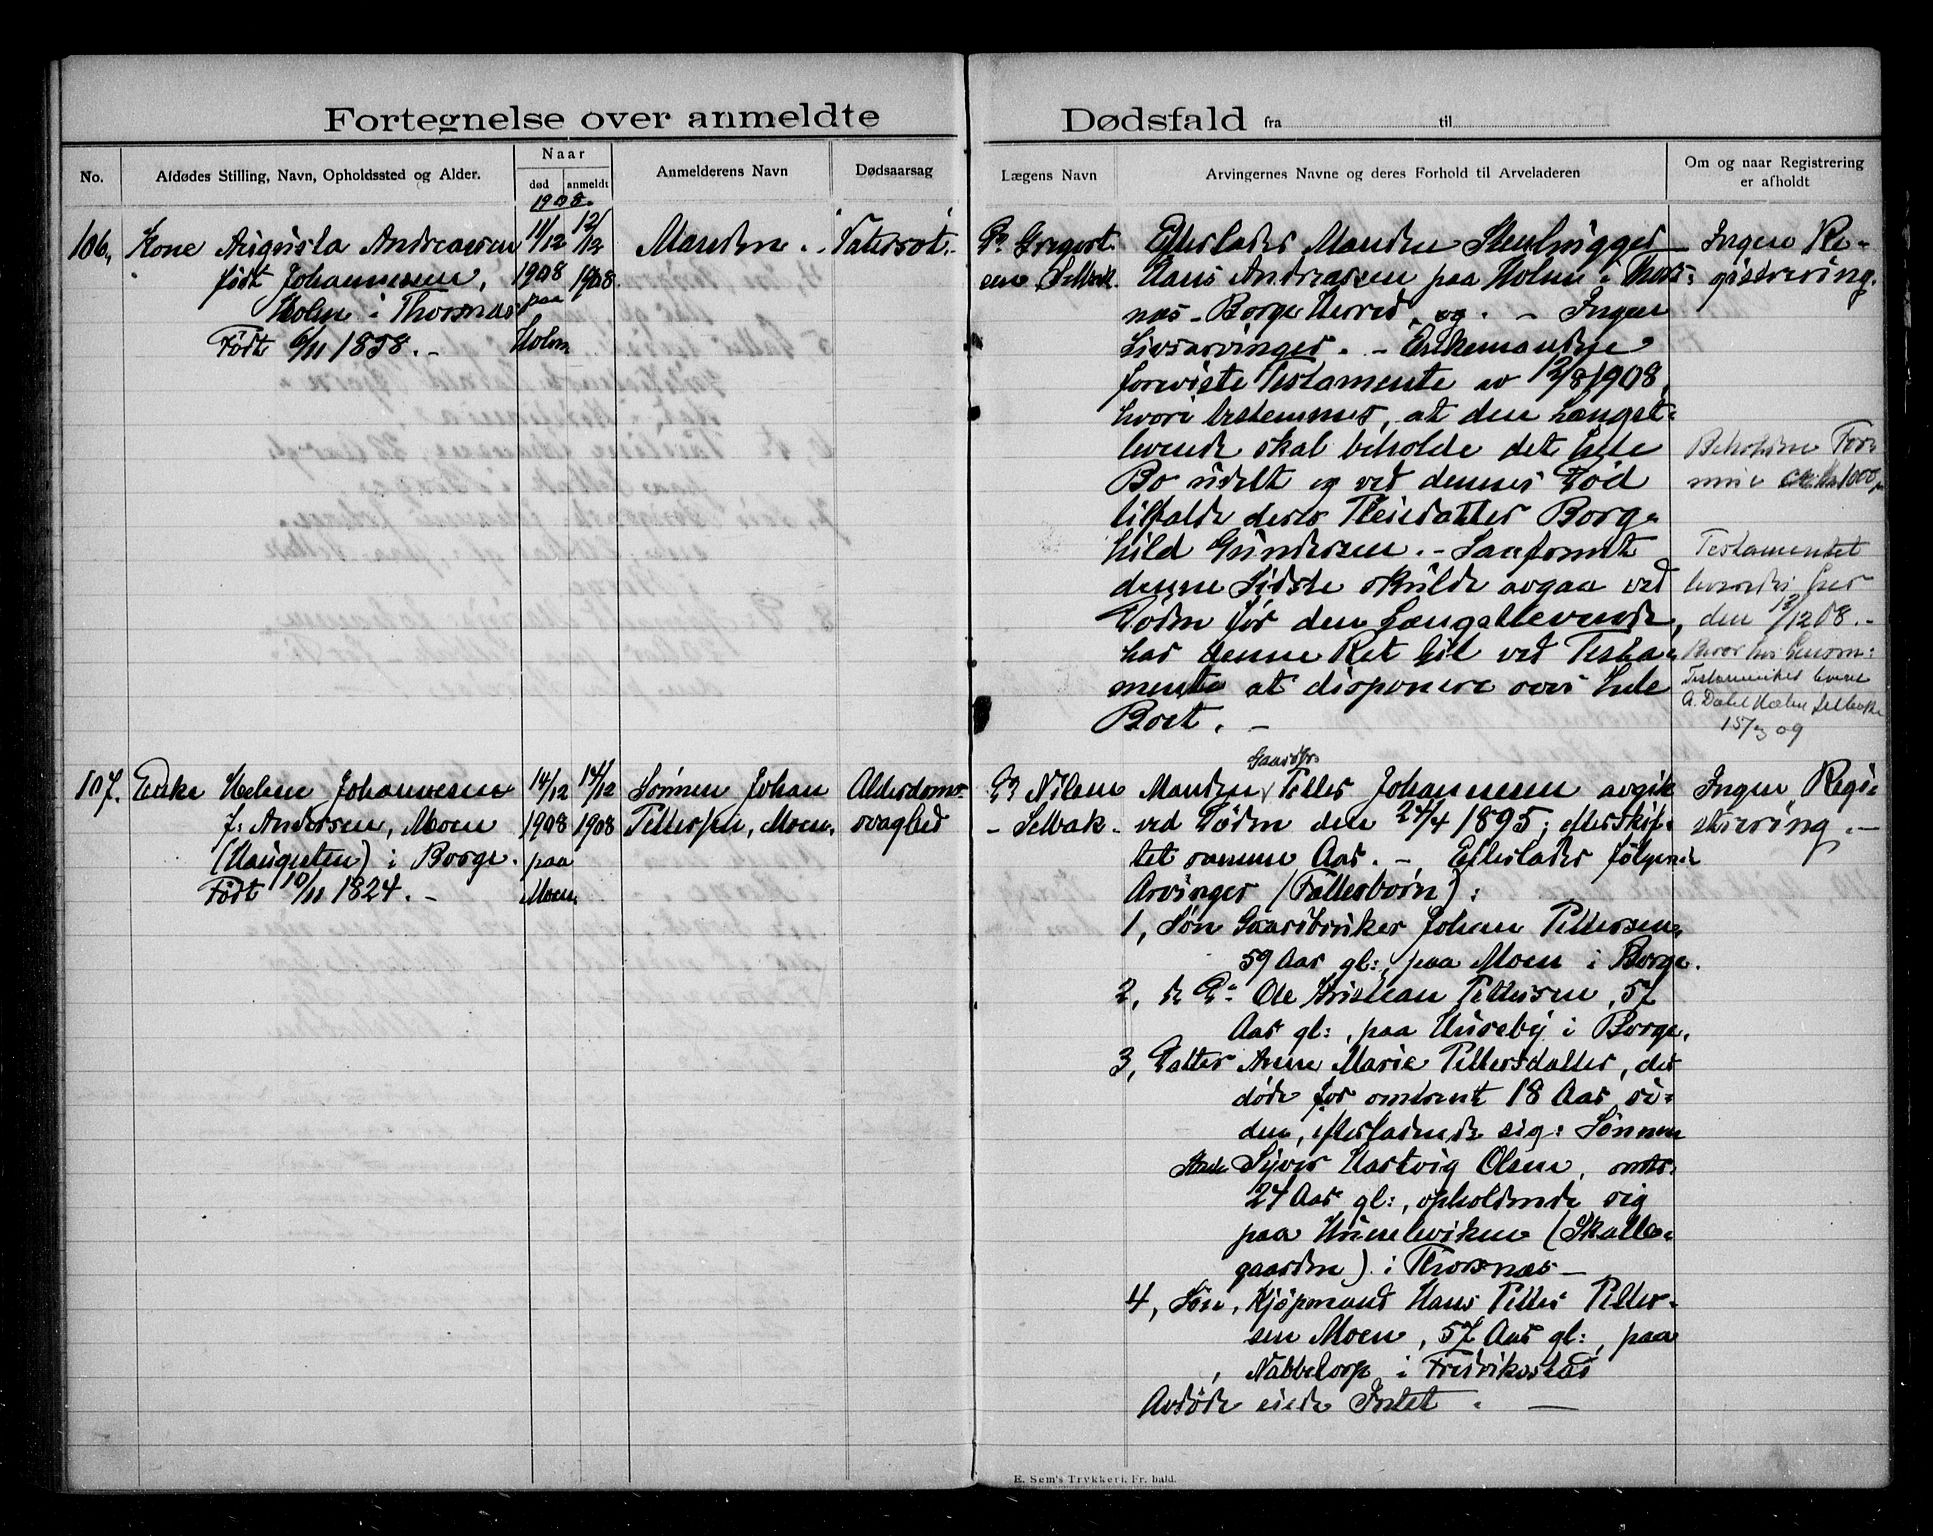 Fortegnelse over anmeldte Dødsfald fra til
No.
Afdødes Stilling, Navn, Opholdssted og Alder.
Naar
død
anmeldt
Anmelderens Navn
Dødsaarsag
Lægens Navn
Arvingernes Navne og deres Forhold til Arveladeren
Om og naar Registrering
er afholdt
1908.
106,
Kone Augusta Andreassen
født Johannessen,
Holm i Thorsnæs
Født 6/11 1858. –
11/12
1908
paa
Holm
12/12
1908.
Manden.
Vatersot.
Dr Gregert-
sen Selbak.
Efterlader Manden Stenhugger
Hans Andreassen paa Holm i Thors-
næs – Borge Herred og. – Ingen
Livsarvinger. – Enkemanden
foreviste Testamente av 12/8 1908,
hvori bestemmes, at den længst-
levende skal beholde det hele
Bo udelt og ved dennes Død
tilfalde deres Pleiedatter Borg-
hild Gundersen. – Saafremt
denne Sidste skulde avgaa ved
Døden før den Længstlevende,
har denne Ret til ved Testa-
mente at disponere over hele
Boet. –
Ingen Re-
gistrering.
Beholden For-
mue ca Kr 1000,
Testamentet
her
den 12/12 08. –
Testamentet
A. Dahl Holm Selbak
15/3 09
107.
Enke Helene Johannesen
f: Andersen, Moen
(Haugeten) i Borge.
Født 10/11 1824. –
14/12
1908
paa
Moen.
14/12
1908
Sønnen Johan
Pettersen, Moen.
Alderdoms-
svaghed
Dr Nilsen
– Selbak.
Gaardbr.
Manden, Petter Johannesen avgik
ved Døden den 24/4 1895; efter Skif-
tet samme Aar. – Efterlader følgende
Arvinger (Fællesbørn):
1, Søn Gaardbruker Johan Pettersen,
59 Aar gl:, paa Moen i Borge.
2, do Do Ole Kristian Pettersen, 57
Aar gl:, paa Huseby i Borge.
3, Datter Anne Marie Pettersdatter, der
døde for omtrent 18 Aar si-
den, efterladende sig: Sønnen
Syver Hartvig Olsen, omtr.
24 Aar gl:, opholdende sig
paa Humlevikene (Skalle-
gaarden) i Thorsnæs –
4, Søn, Kjøpmand Hans Petter Petter-
sen Moen, 57 Aar gl:, paa
Nabbetorp i Fredrikstad
Avdøde eiede Intet. –
Ingen Regi-
strering. –
E. Sem's Trykkeri, Fr. hald.